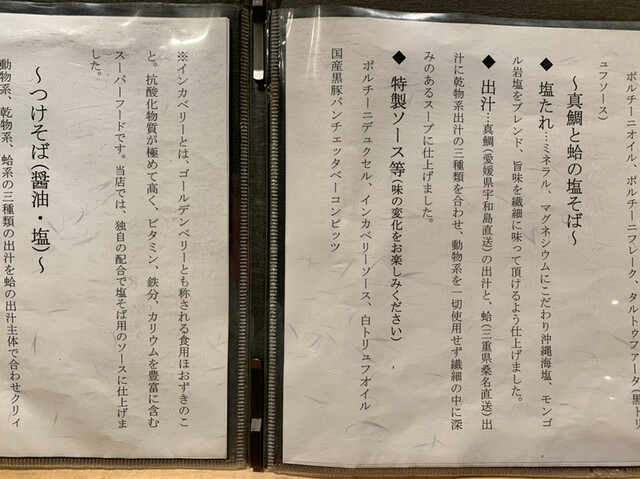 ポルチーニオイル、ポルチーニフレーク、タルトゥファータ(黒トリ
ュフソース)
～真鯛と蛤の塩そば～
◆ 塩たれ…ミネラル、マグネシウムにこだわり沖縄海塩、モンゴ
ル岩塩をブレンド、旨味を繊細に味って頂けるよう仕上げました。
◆ 出汁…真鯛(愛媛県宇和島直送)の出汁と、蛤(三重県桑名直送)出
汁に乾物系出汁の三種類を合わせ、動物系を一切使用せず繊細の中に深
みのあるスープに仕上げました。
◆ 特製ソース等(味の変化をお楽しみください)
ポルチーニデュクセル、インカベリーソース、白トリュフオイル
国産黒豚パンチェッタベーコンビッツ
※インカベリーとは、ゴールデンベリーとも称される食用ほおずきのこ
と。抗酸化物質が極めて高く、ビタミン、鉄分、カリウムを豊富に含む
スーパーフードです。当店では、独自の配合で塩そば用のソースに仕上げま
した。
～つけそば(醤油・塩)～
動物系、乾物系、蛤系の三種類の出汁を蛤の出汁主体で合わせクリィ